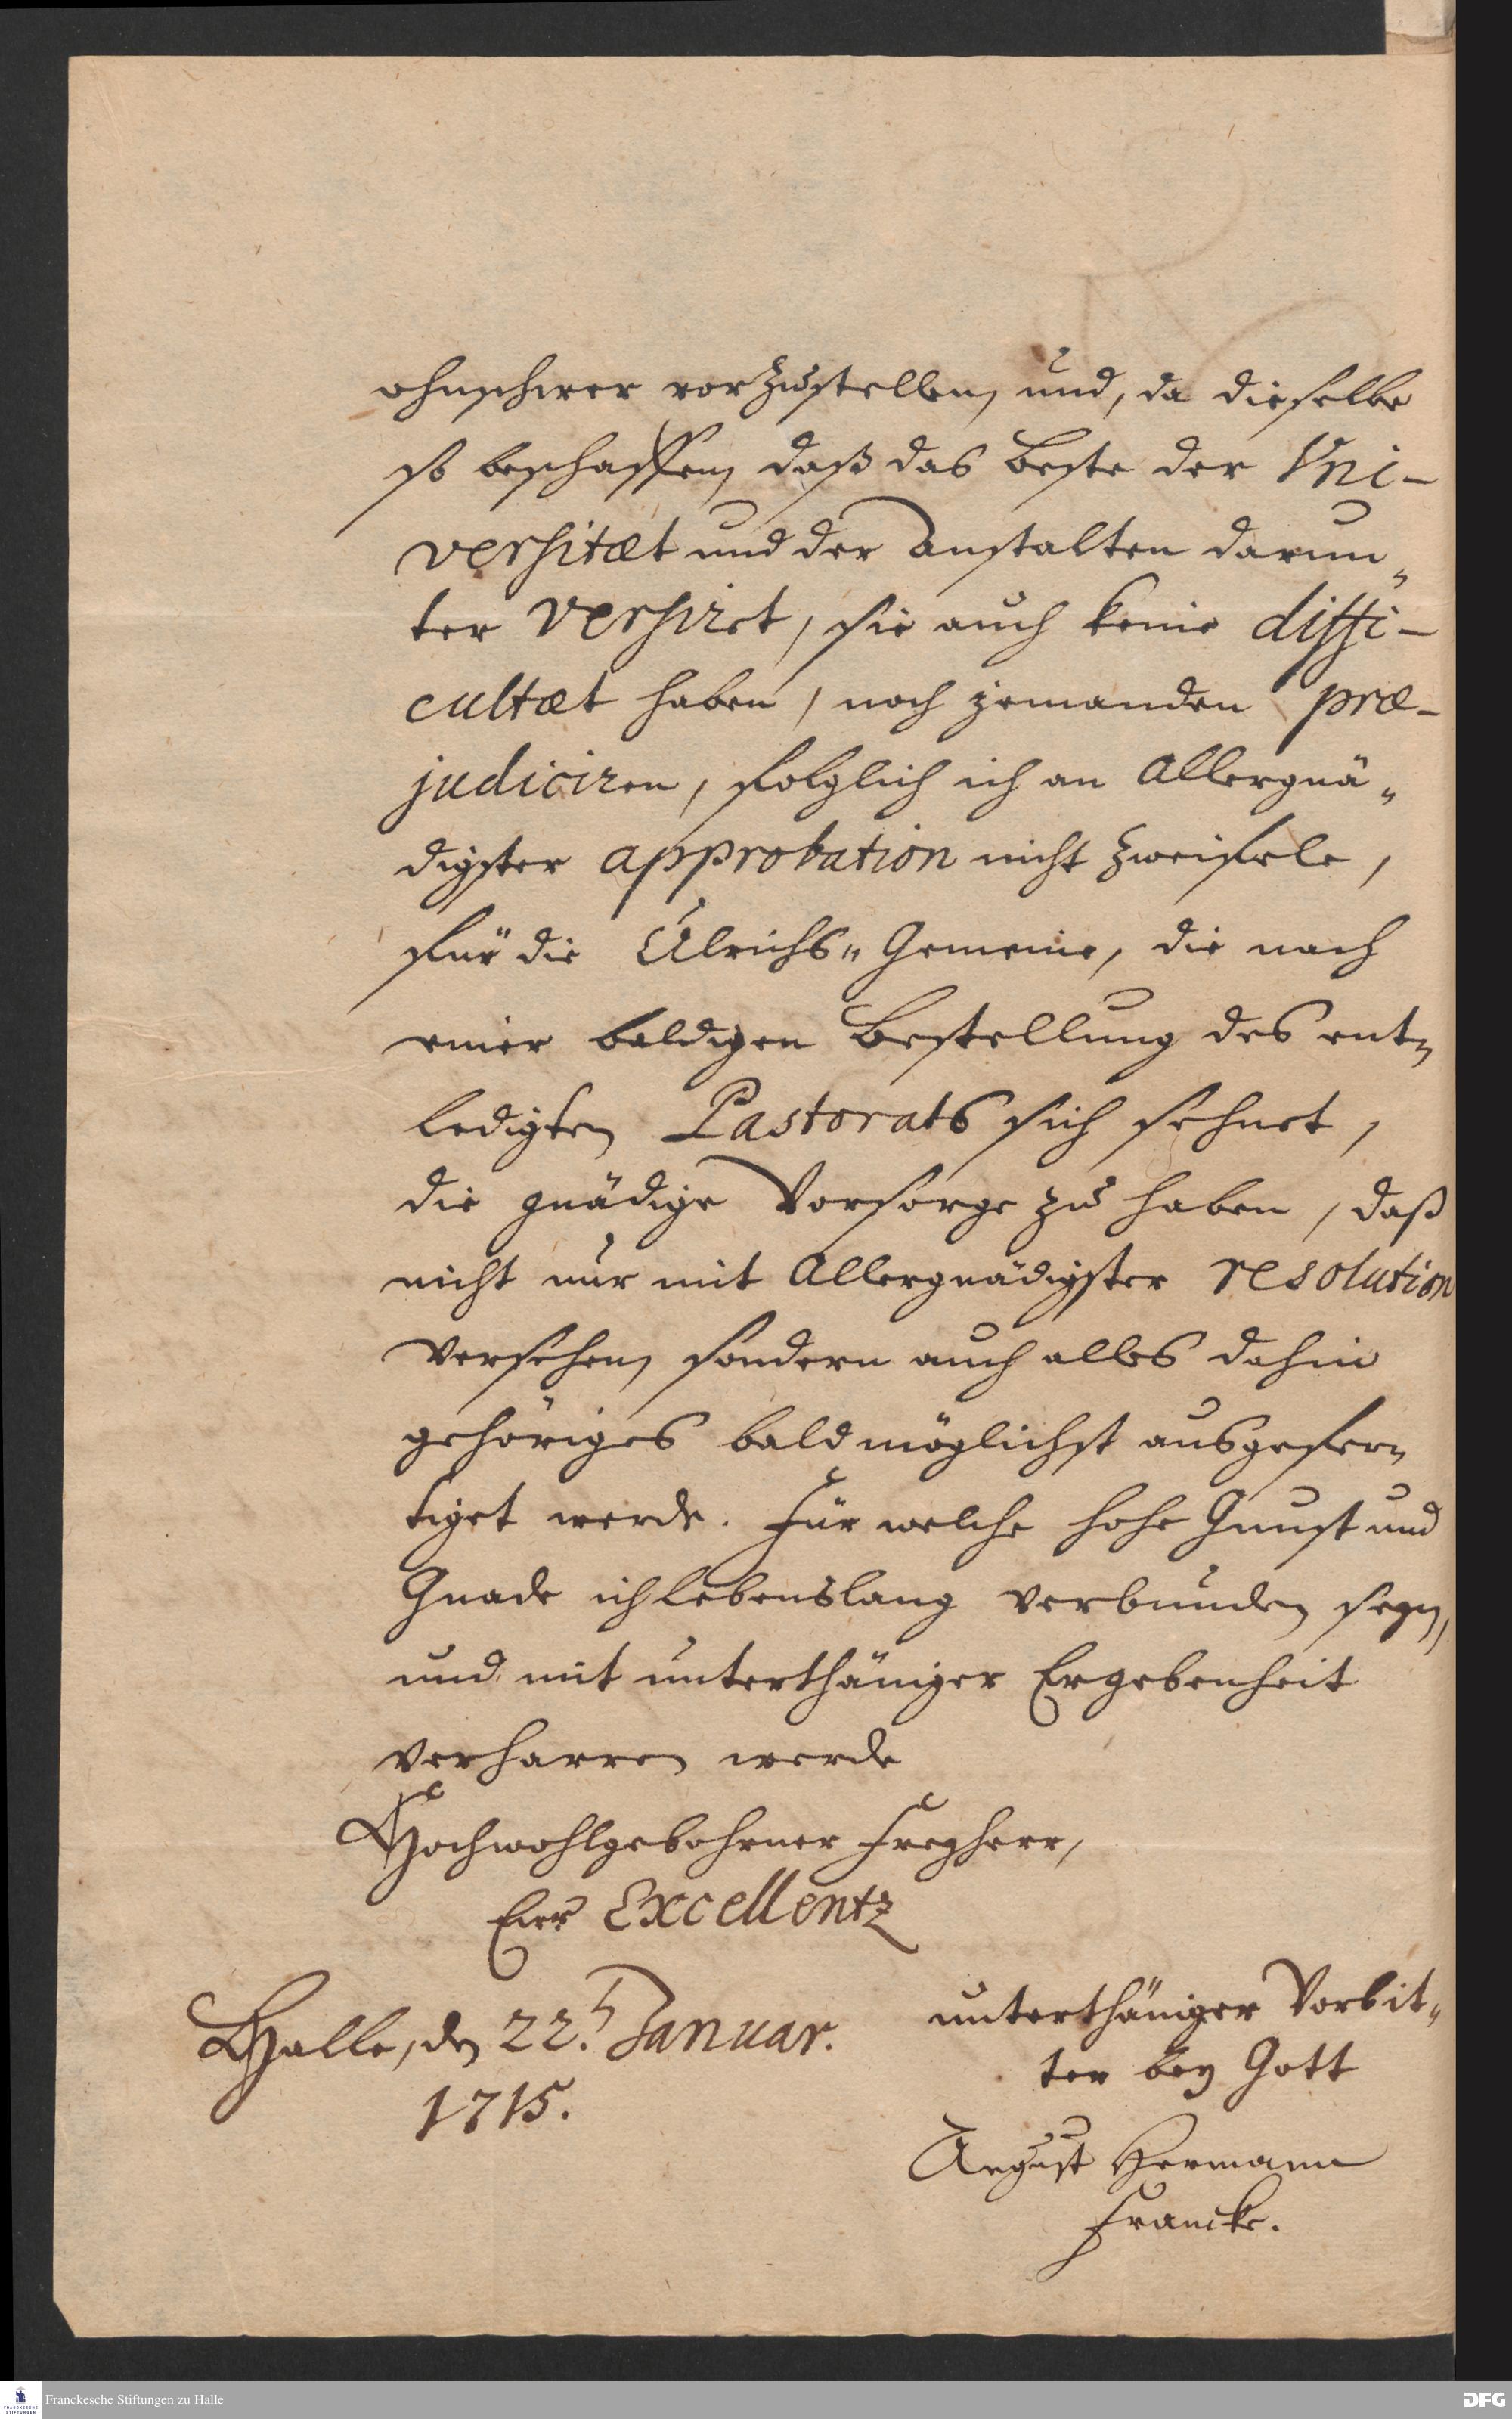 ohnschwer vorzustellen, und, da dieselbe
so beschaffen, daß das Beste der Uni-
versitæt und der Anstalten darun„
ter versiret, sie auch keine diffi-
cultæt haben, noch jemanden præ-
judiciren, folglich ich an Allergnä„
digster approbation nicht zweifele,
für die Ulrichs„ Gemeine, die nach
einer baldigen Bestellung des ent„
ledigten Pastorats sich sehnet,
die gnädige Vorsorge zu haben, daß
nicht nur mit Allergnädigster resolution
versehen, sondern auch alles dahin
gehöriges baldmöglichst ausgefer„
tiget werde. Für welche hohe Gunst und
Gnade ich lebenslang verbunden seyn,
und mit unterthäniger Ergebenheit
verharren werde
Hochwohlgebohrner Freyherr,
Eur Excellentz
Halle, den 22. Januar.
1715.
unterthäniger Vorbit„
ter bey Gott
August Hermann
Francke.
Franckesche Stiftungen zu Halle
FRANCKESCHE STIFTUNGEN
DFG